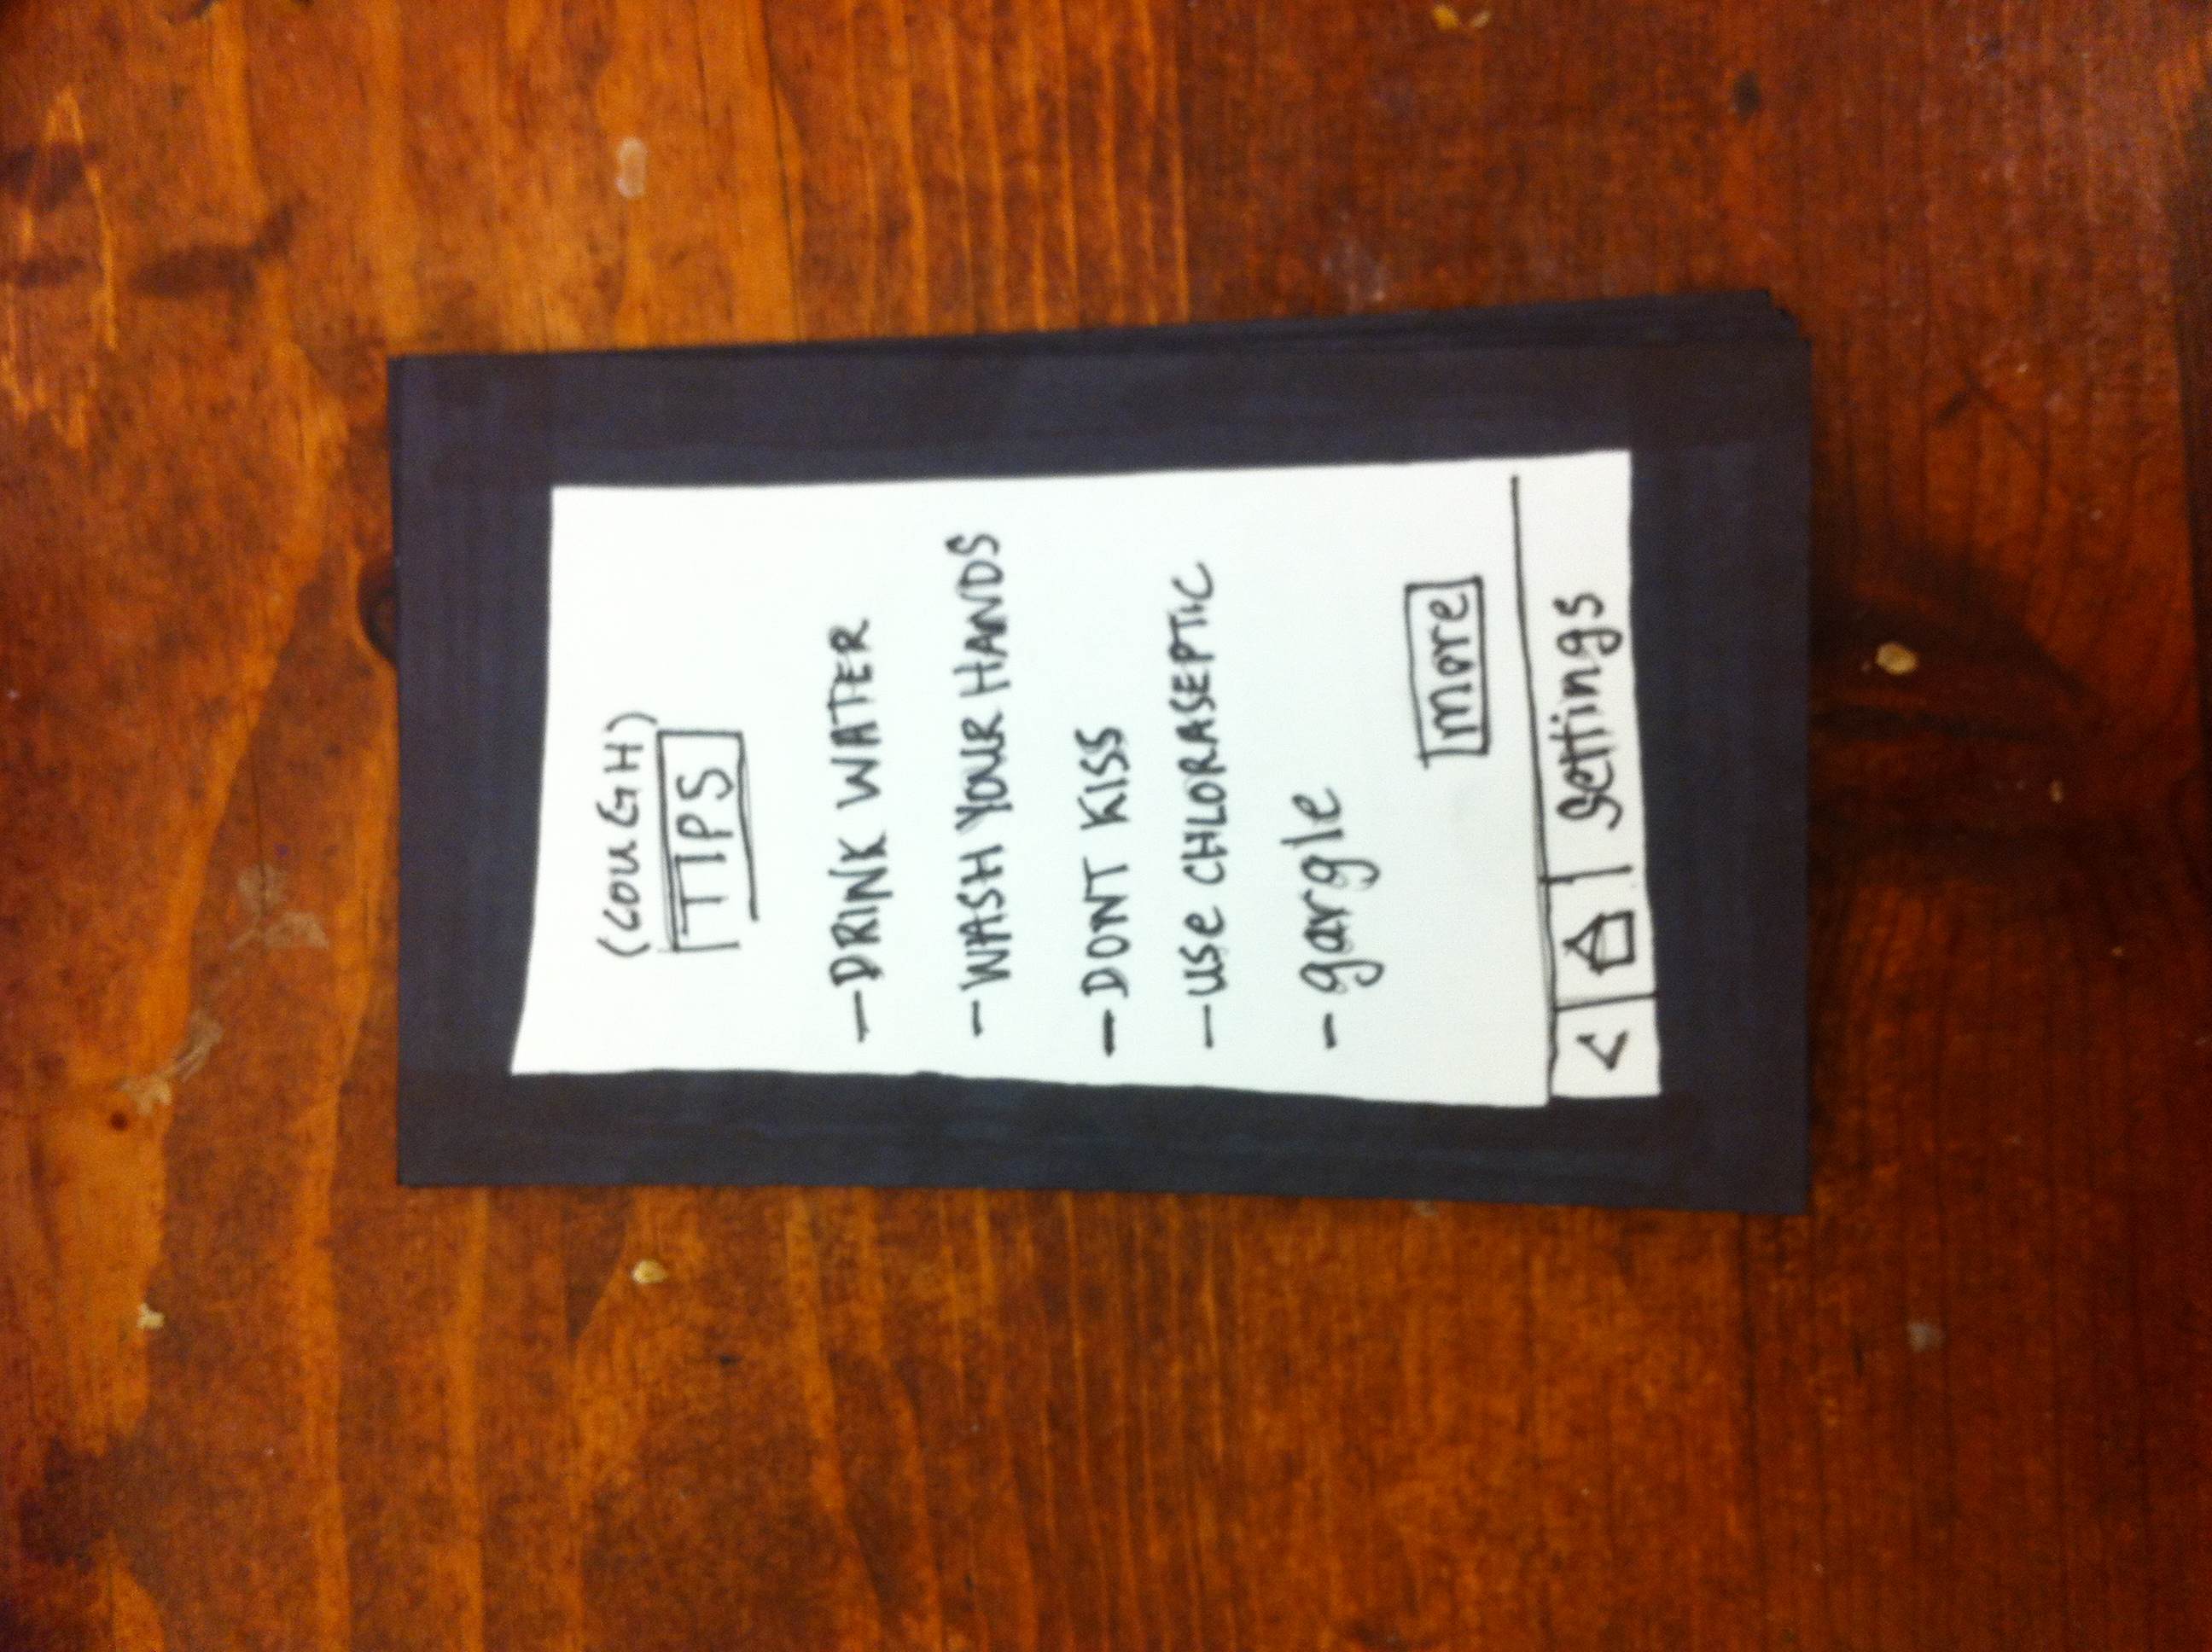 (COUGH)
TIPS
- DRINK WATER
- WASH YOUR HANDS
- DONT KISS
- USe CHLORASEPTIC
- gargle
more
< Settings